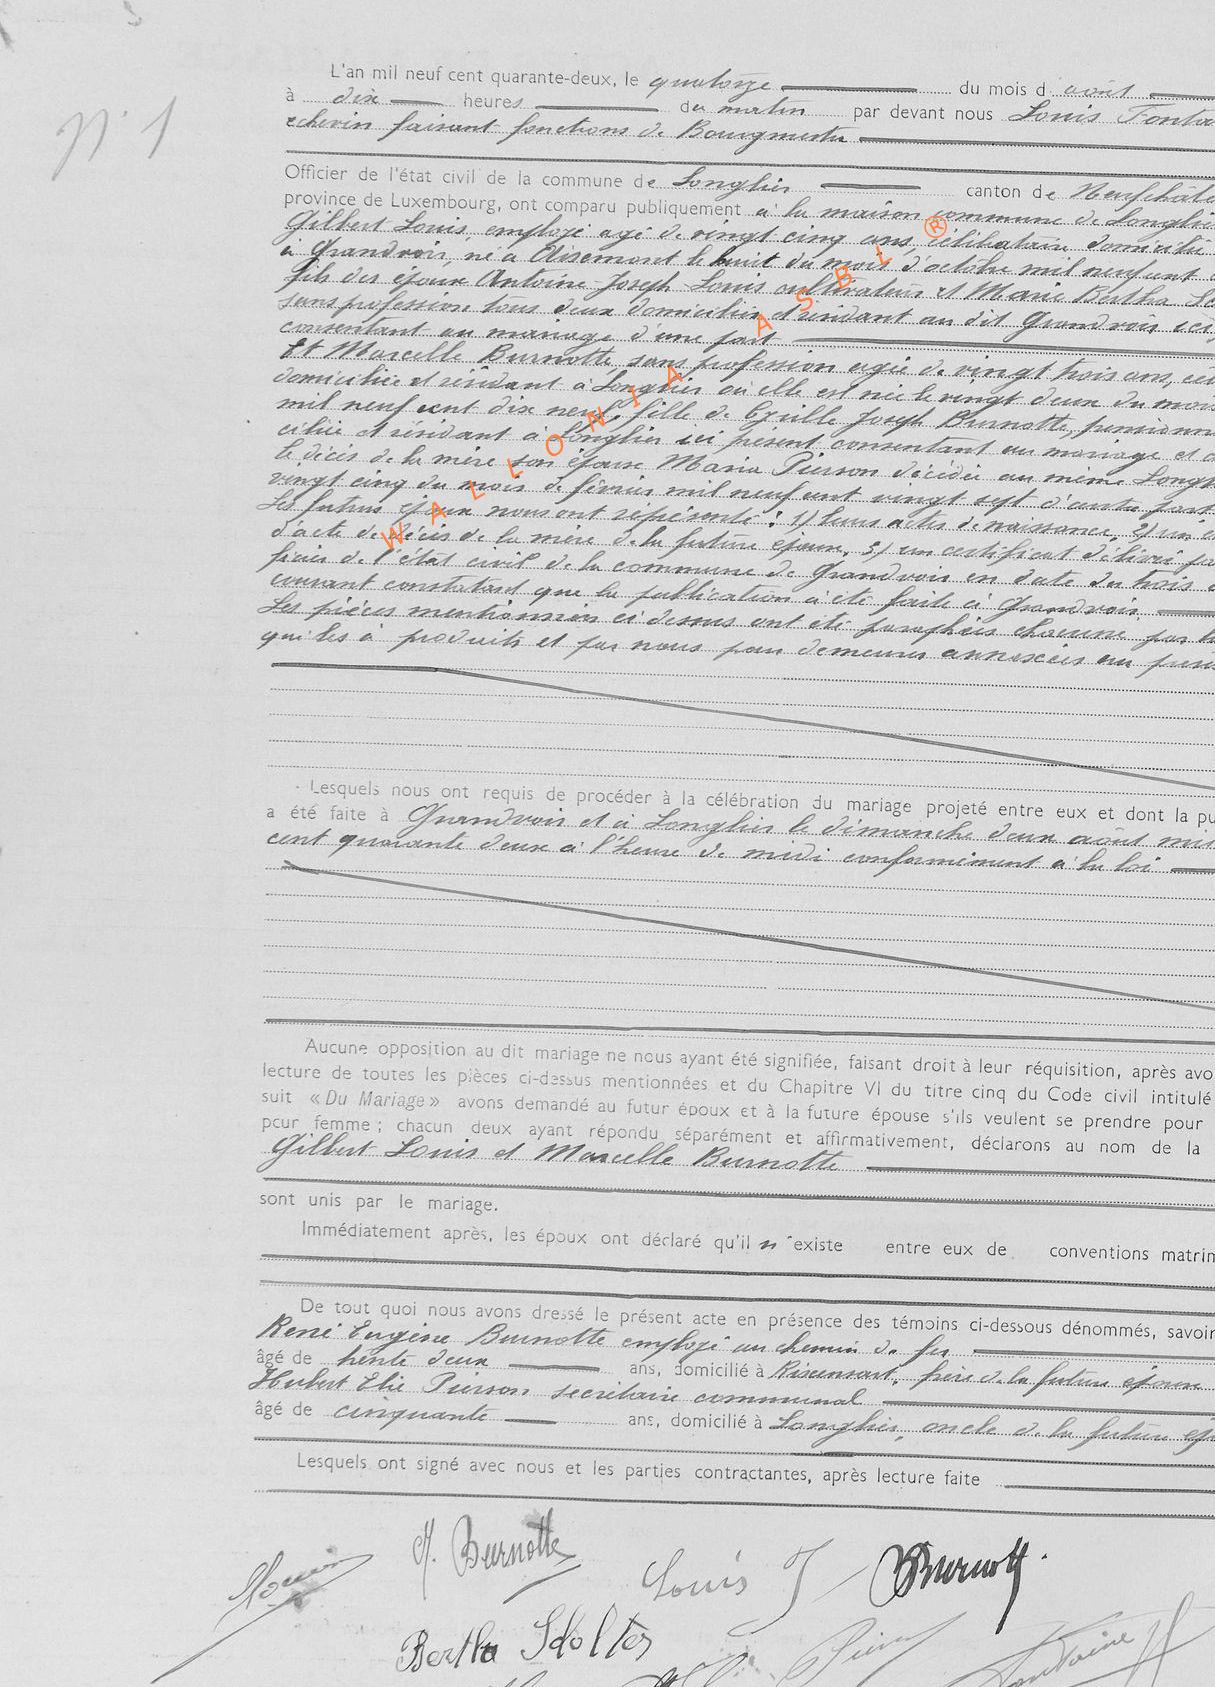 N° 1
L'an mil neuf cent quarante-deux, le quatorze du mois d août
à dix heures du matin par devant nous Louis
échevin faisant fonctions de Bourgmestre
Officier de l'état civil de la commune de Longlier canton de
province de Luxembourg, ont comparu publiquement à la maison commune de Longlier
Gilbert Louis, employé agé de vingt cinq ans, célibataire domicilié
à Grandvoir, né à Aisemont le huit du mois d'octobre mil neuf cent
fils des époux Antoine Joseph Louis cultivateur et Marie Bertha
sans profession tous deux domiciliés et résidant au dit Grandvoir ici
consentant au mariage d'une part
Et Marcelle Burnotte, sans profession agée de vingt trois ans,
domiciliée et résidant à Longlier où elle est née le vingt deux du mois
mil neuf cent dix neuf, fille de Joseph Burnotte,
et résidant à Longlier ici présent consentant au mariage et
le décès de la mère son épouse Maria Pierson décédée au même
vingt cinq du mois de février mil neuf cent vingt sept d'autre part
Les futurs époux nous ont représenté : 1) leurs actes de naissance, 2) un
d'acte de décès de la mère de la future épouse, 3) un certificat délivré
de l'état civil de la commune de Grandvoir en date du trois
courant constatant que la publication a été faite à Grandvoir.
Les pièces mentionnées ci dessus ont été paraphées chacune par
qui les a produits et par nous pour demeurer annexées au
Lesquels nous ont requis de procéder à la célébration du mariage projeté entre eux et dont la pu
a été faite à Grandvoir et à Longlier le dimanche deux août
cent quarante deux à l'heure de midi conformément à la loi
Aucune opposition au dit mariage ne nous ayant été signifiée, faisant droit à leur réquisition, après avo
lecture de toutes les pièces ci-dessus mentionnées et du Chapitre VI du titre cinq du Code civil intitulé
suit «Du Mariage» avons demandé au futur époux et à la future épouse s'ils veulent se prendre pour
pour femme ; chacun deux ayant répondu séparément et affirmativement, déclarons au nom de la
Gilbert Louis et Marcelle Burnotte
sont unis par le mariage.
Immédiatement après, les époux ont déclaré qu'il n'existe entre eux de conventions matrim
De tout quoi nous avons dressé le présent acte en présence des témoins ci-dessous dénommés, savoir
René Eugène Burnotte employé au chemin de fer
âgé de trente deux ans, domicilié à Rixensart, frère de la future épouse
Hubert Elie Pierson secrétaire communal
âgé de cinquante ans, domicilié à Longlier, oncle de la future
Lesquels ont signé avec nous et les parties contractantes, après lecture faite
M. Burnotte
Louis J Burnotte
Bertha
Pierson Fontaine
WALLONIA ASBL ®